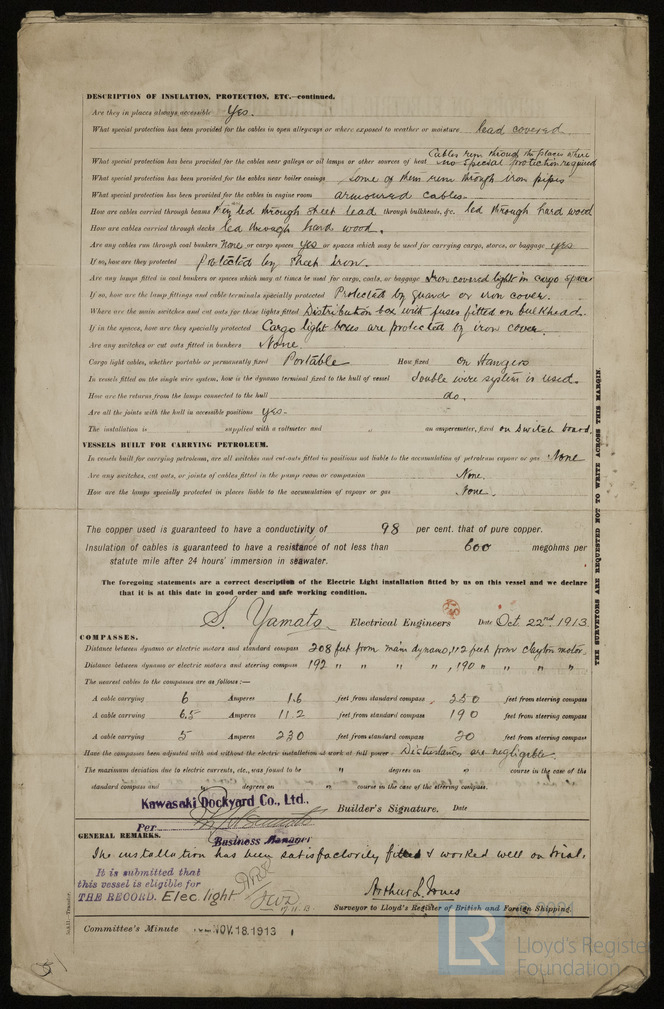 DESCRIPTION OF INSULATION, PROTECTION, ETC.—continued.
Are they in places always accessible Yes.
What special protection has been provided for the cables in open alleyways or where exposed to weather or moisture lead covered
Cables run through the places where
What special protection has been provided for the cables near galleys or oil lamps or other sources of heat no special protection required
What special protection has been provided for the cables near boiler casings Some of them run through iron pipes
What special protection has been provided for the cables in engine room armoured cables.
How are cables carried through beams led through sheet lead through bulkheads, &c. led through hard wood
How are cables carried through decks led through hard wood.
Are any cables run through coal bunkers None or cargo spaces yes or spaces which may be used for carrying cargo, stores, or baggage yes
If so, how are they protected protected by sheet iron.
Are any lamps fitted in coal bunkers or spaces which may at times be used for cargo, coals, or baggage Iron covered lights in cargo space
If so, how are the lamp fittings and cable terminals specially protected Protected by guard or iron cover.
Where are the main switches and cut outs for these lights fitted Distribution box with fuses fitted on bulkhead.
If in the spaces, how are they specially protected Cargo light boxes are protected by iron cover.
Are any switches or cut outs fitted in bunkers None.
Cargo light cables, whether portable or permanently fixed Portable How fixed on Hangers
In vessels fitted on the single wire system, how is the dynamo terminal fixed to the hull of vessel Double wire system is used.
How are the returns from the lamps connected to the hull do.
Are all the joints with the hull in accessible positions yes.
The installation is supplied with a voltmeter and " an amperemeter, fixed on switch board.
VESSELS BUILT FOR CARRYING PETROLEUM.
In vessels built for carrying petroleum, are all switches and cut-outs fitted in positions not liable to the accumulation of petroleum vapour or gas None
Are any switches, cut outs, or joints of cables fitted in the pump room or companion None.
How are the lamps specially protected in places liable to the accumulation of vapour or gas None.
The copper used is guaranteed to have a conductivity of 98 per cent. that of pure copper.
Insulation of cables is guaranteed to have a resistance of not less than 600 megohms per
statute mile after 24 hours' immersion in seawater.
The foregoing statements are a correct description of the Electric Light installation fitted by us on this vessel and we declare
that it is at this date in good order and safe working condition.
S. Yamato Electrical Engineers Date Oct. 22nd 1913.
COMPASSES.
Distance between dynamo or electric motors and standard compass 208 feet from main dynamo, 112 feet from clayton motor.
Distance between dynamo or electric motors and steering compass 192 " " " " , 190 " " " "
The nearest cables to the compasses are as follows:—
A cable carrying 6 Amperes 1.6 feet from standard compass 250 feet from steering compass
A cable carrying 6.5 Amperes 11.2 feet from standard compass 190 feet from steering compass
A cable carrying 5 Amperes 230 feet from standard compass 20 feet from steering compass
Have the compasses been adjusted with and without the electric installation at work at full power Disturbances are negligible.
The maximum deviation due to electric currents, etc., was found to be " degrees on " course in the case of the
standard compass and " degrees on " course in the case of the steering compass.
Kawasaki Dockyard Co., Ltd., Builder's Signature. Date
Per
Business Manager
GENERAL REMARKS.
The installation has been satisfactorily fitted & worked well on trial.
It is submitted that
this vessel is eligible for
THE RECORD. Elec. light
17.11.13
Arthur L. Jones
Surveyor to Lloyd's Register of British and Foreign Shipping.
Committee's Minute NOV. 18. 1913
THE SURVEYORS ARE REQUESTED NOT TO WRITE ACROSS THIS MARGIN.
LR
Lloyd's Register
Foundation